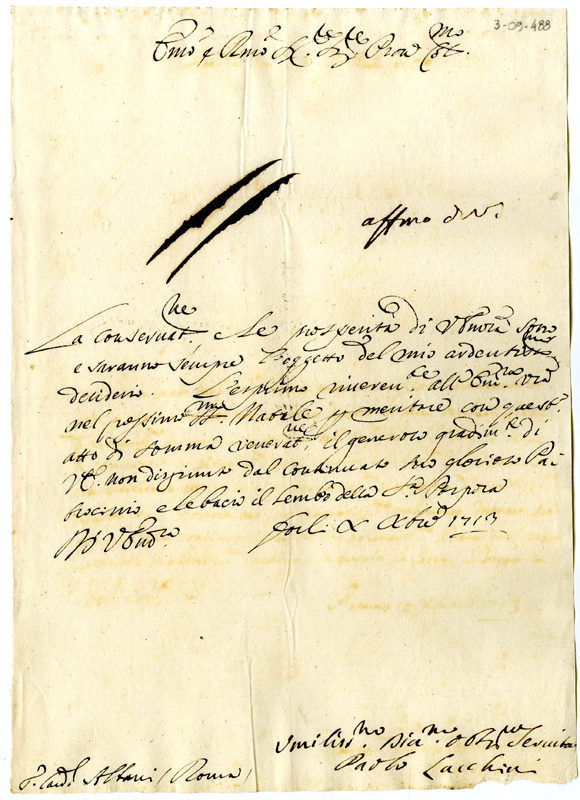 3-09-488
Emo e Rmo Sre Pre Pron Colmo
affmo di V.
La conservatne, e le prosperità di V Emza sono
e saranno sempre l'oggetto del mio ardentismo
desiderio. L'esprimo riverente all' Emza Vra
nel prossimo SSmo Natale per meritare con quest'
atto di somma veneratne il generoso gradimto di
V.E. non disgiunto dal continuato suo glorioso Pa-
trocinio e le bacio il lembo della Sra Porpora
Di V Emza Forlì Xbre 1713
Umilissmo Divmo Obbmo Servitore
Paolo Lucchini
Sr Card. Albani (Roma)